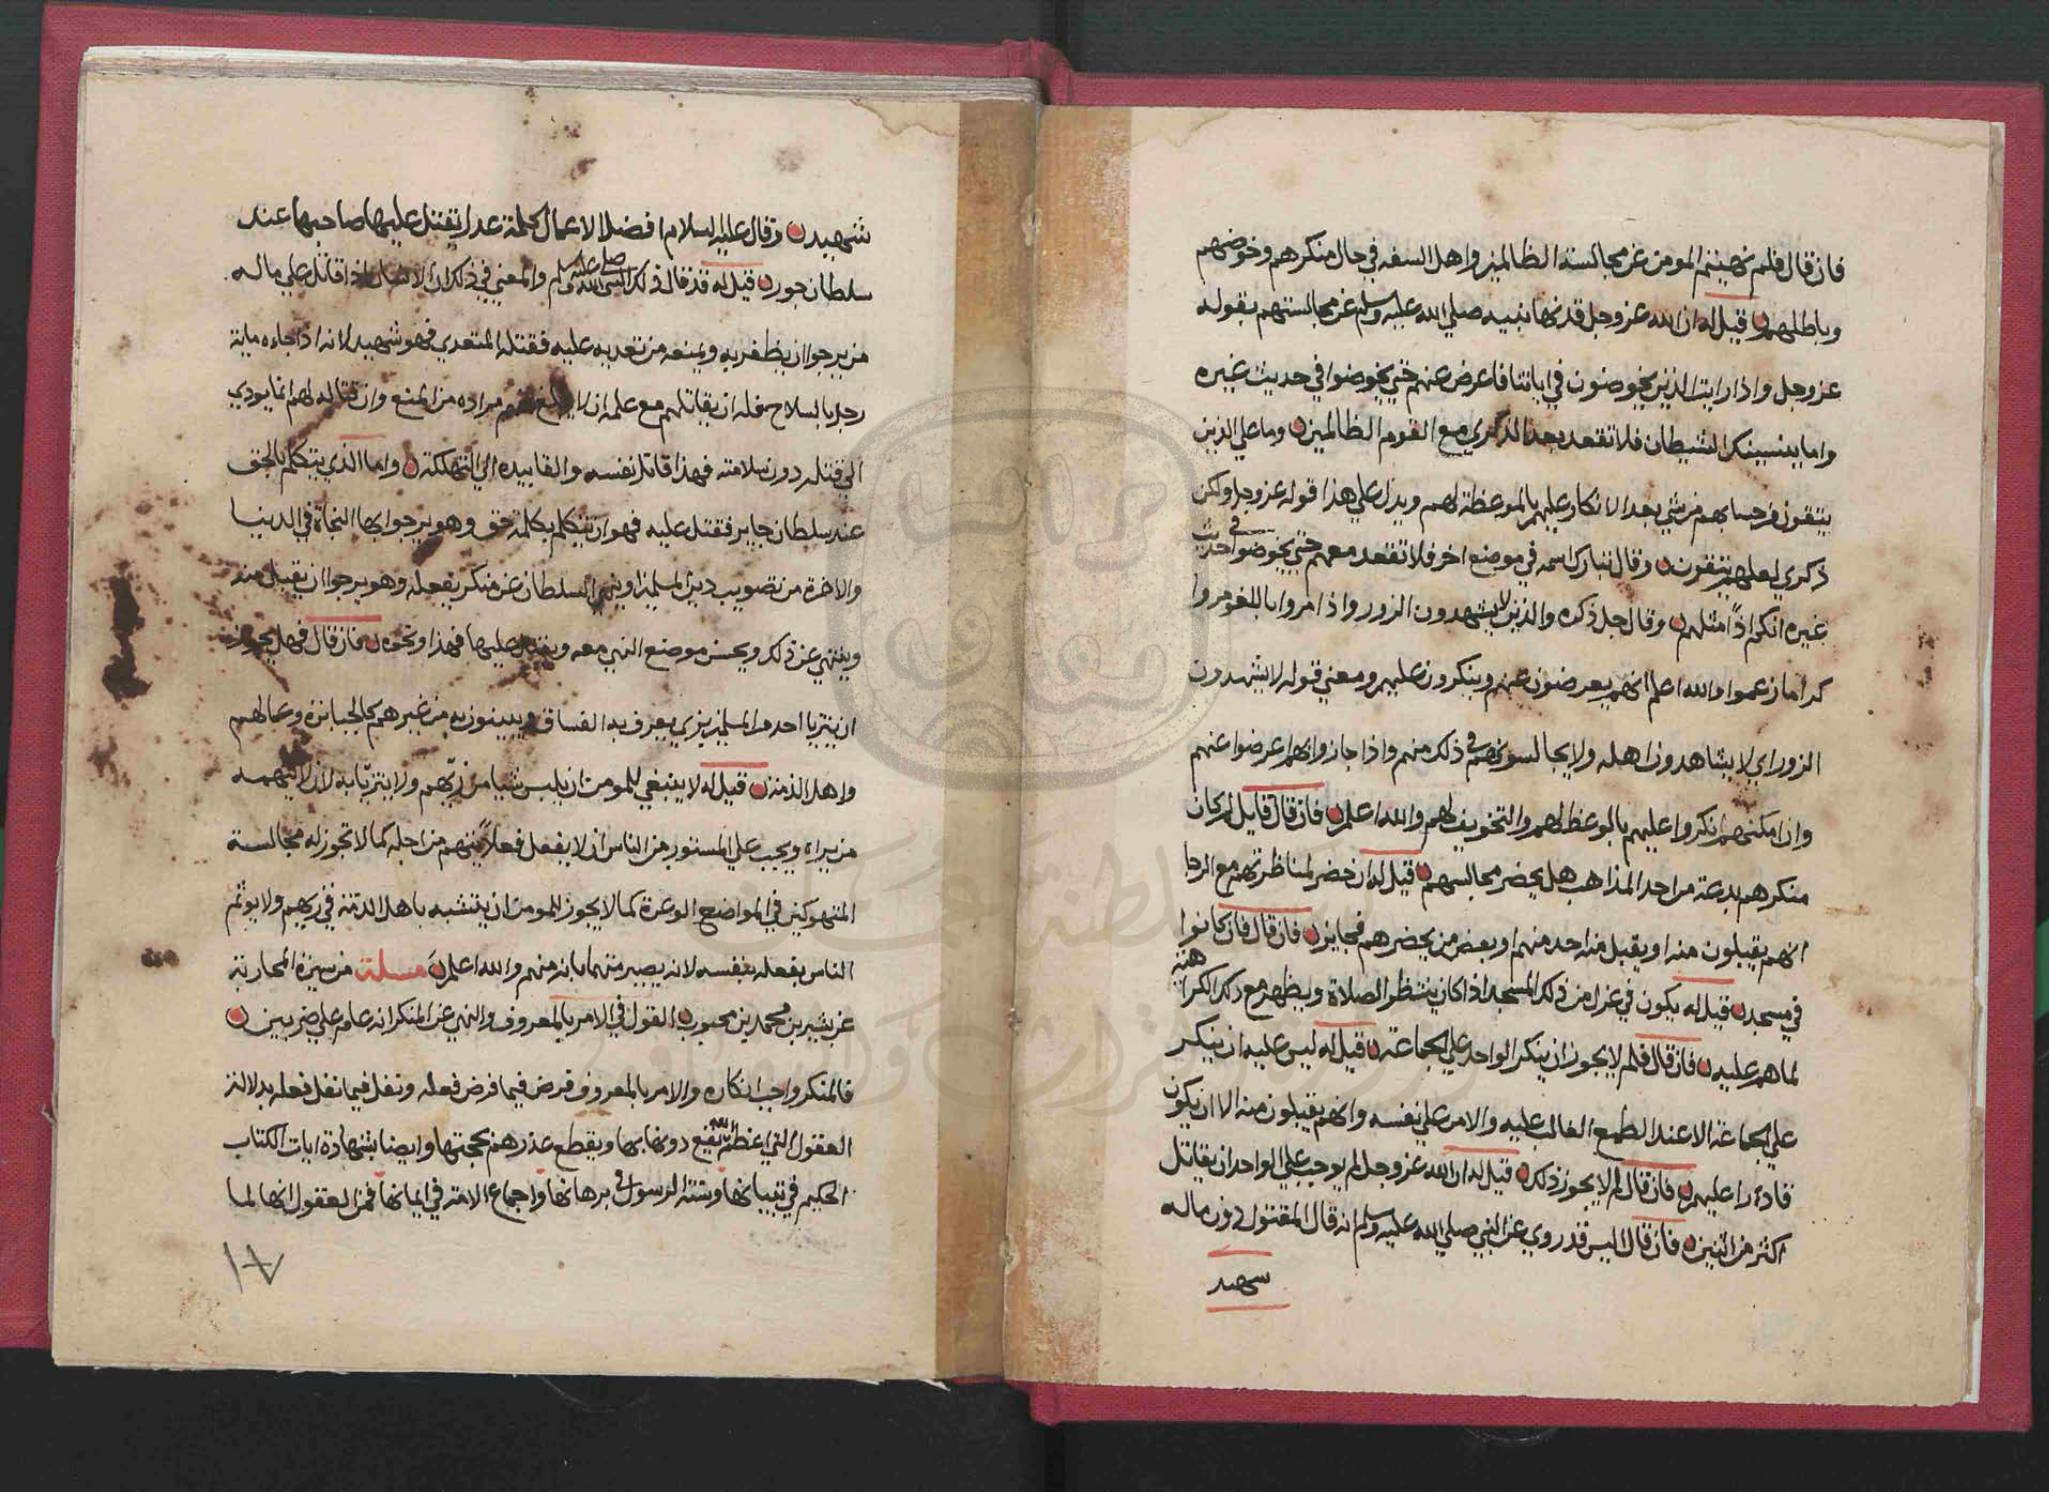 فان قال فلم نهيتم المومن عن مجالسة الظالمين واهل السفه في حال منكرهم وخوضهم
وباطلهم قيل له ان الله عز وجل قد نها نبيه صلي الله عليه وسلم عن مجالستهم بقوله
عز وجل واذا رايت الذين يخوضون في اياتنا فاعرض عنهم حتي يخوضوا في حديث غيره
واما ينسينك الشيطان فلا تقعد بعد الذكري مع القوم الظالمين وما علي الذين
يتقون من حسابهم من شي بعد الانكار عليهم بالموعظة لهم ويدل علي هذا قوله عز وجل ولكن
ذكري لعلهم يتقون وقال تبارك اسمه في موضع اخر فلا تقعد معهم حتي يخوضوا في حديث
غيره انكم اذاً مثلهم وقال جل ذكره والذين لا يشهدون الزور واذا مروا باللغو مروا
كراما زعموا والله اعلم انهم يعرضون عنهم وينكرون عليهم ومعني قوله لا يشهدون
الزور اي لا يشاهدون اهله ولا يجالسونهم في ذلك منهم واذا جازوا بهم اعرضوا عنهم
وان امكنهم انكروا عليهم بالوعظ لهم والتخويف لهم والله اعلم فان قال قايل لم كان
منكرهم بدعة من احد المذاهب هل يحضر مجالسهم قيل له ان حضر لمناظرتهم مع الرجا
انهم يقبلون منه او يقبل منه احد منهم او بعض من يحضرهم فجايز فان قال فان كانوا
في مسجد قيل له يكون في عزل من ذلك المسجد اذا كان ينتظر الصلاة ويظهر مع ذلك الكراهية
لما هم عليه فان قال فلم لا يجوز ان ينكر الواحد علي الجماعة قيل له ليس عليه ان ينكر
علي الجماعة الا عند الطمع الغالب عليه والامن علي نفسه وانهم يقبلون منه الا ان يكون
قادرا عليهم فان قال لم لا يجوز ذلك قيل له ان الله عز وجل لم يوجب علي الواحد ان يقاتل
اكثر من اثنين فان قال اليس قد روي عن النبي صلي الله عليه وسلم انه قال المقتول دون ماله
شهيد
شهيد وقال عليه السلام افضل الاعمال كلمة عدل يقتل عليها صاحبها عند
سلطان جور قيل له قد قال ذلك النبي صلي الله عليه وسلم والمعني في ذلك ان الانسان اذا قاتل علي ماله
من يرجوا ان يظفر به ويمنعه من تعديه عليه فقتله المتعدي فهو شهيد لانه اذا جاءه ماية
رجل بالسلاح فله ان يقاتلهم مع علمه ان لا يبلغ منهم مراده من المنع وان قتاله لهم انما يودي
الي قتله دون سلامته فهذا قاتل نفسه والقا بيده الي التهلكة واما الذي يتكلم بالحق
عند سلطان جاير فقتل عليه فهو ان يتكلم بكلمة حق وهو يرجوا بها النجاة في الدنيا
والاخرة من تصويب دين المسلمين او ينهي السلطان عن منكر يفعله وهو يرجوا ان يقبل منه
وينتهي عن ذلك ويحسن موضع النهي معه ويقتل عليها فهذا ونحوه فان قال فهل يجوز
ان يتزيا احد من المسلمين بزي يعرف به الفساق ويبينون به من غيرهم كالجبابرة وعمالهم
واهل الذمة قيل له لا ينبغي للمومن ان يلبس شيا من زيّهم ولا يتزيّا به لان لا يتهمه
من يراه ويجب علي المستور من الناس ان لا يفعل فعلاً يتهم من اجله كما لا تجوز له مجالسة
المتهوكين في المواضع الوعرة كما لا يجوز للمومن ان يتشبه باهل الذمة في زيهم ولا يوثم
الناس بفعله بنفسه لانه يصير متهما بانه منهم والله اعلم مسلة من سيرة المحاربة
عن بشير بن محمد بن محبوب القول في الامر بالمعروف والنهي عن المنكر انه عام علي ضربين
فالمنكر واجب انكاره والامر بالمعروف فرض فيما فرض فعله ونفل فيما نفل فعله بدلالة
العقول التي اعظم الله دونها بها ويقطع عذرهم بحجتها وايضا بشهادة ايات الكتاب
الحكيم في تبيانها وسنة الرسول في برهانها واجماع الامة في ايمانها فمن العقول انها لما
١٧